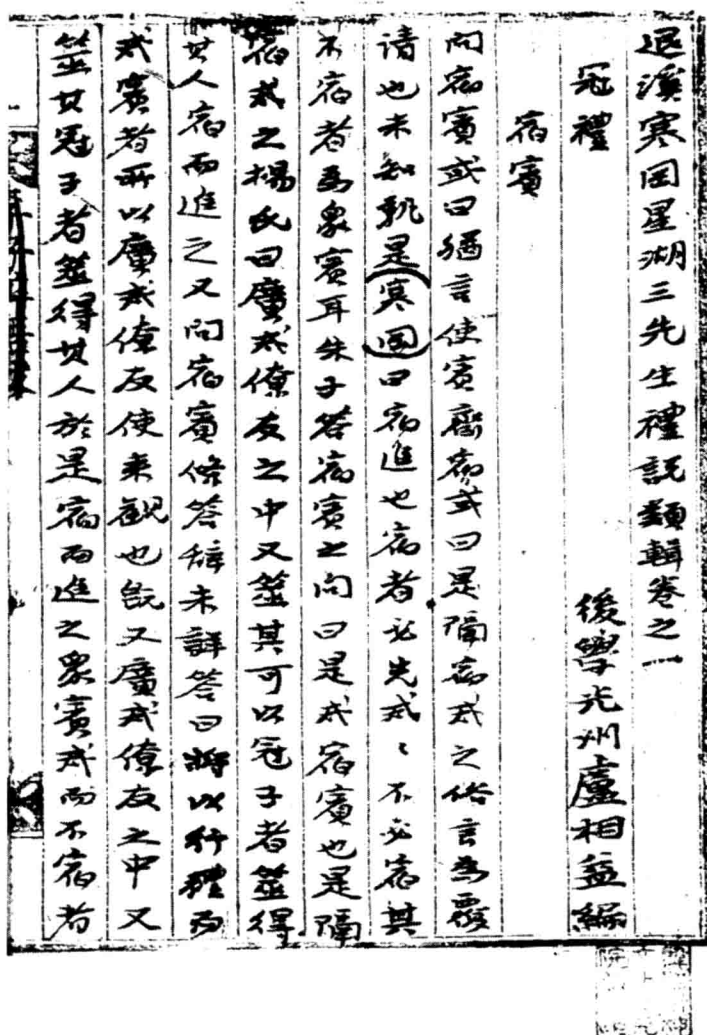 退溪寒岡星湖三先生禮說類輯卷之一
冠禮　後學光州盧相益編
宿賓
問宿賓或曰猶言使賓齋宿或曰是隔宿戒之俗言為覆
請也未知孰是寒岡曰宿進也宿者必先戒〻不必宿其
不宿者為衆賓耳朱子答宿賓之問曰是戒宿賓也是隔
宿戒之楊氏曰廣戒僚友之中又筮其可以冠子者筮得
其人宿而進之又問宿賓條答辭未詳答曰將以行禮而
戒賓者所以廣戒僚友使來觀也旣又廣戒僚友之中又
筮其冠子者筮得其人於是宿而進之衆賓戒而不宿者